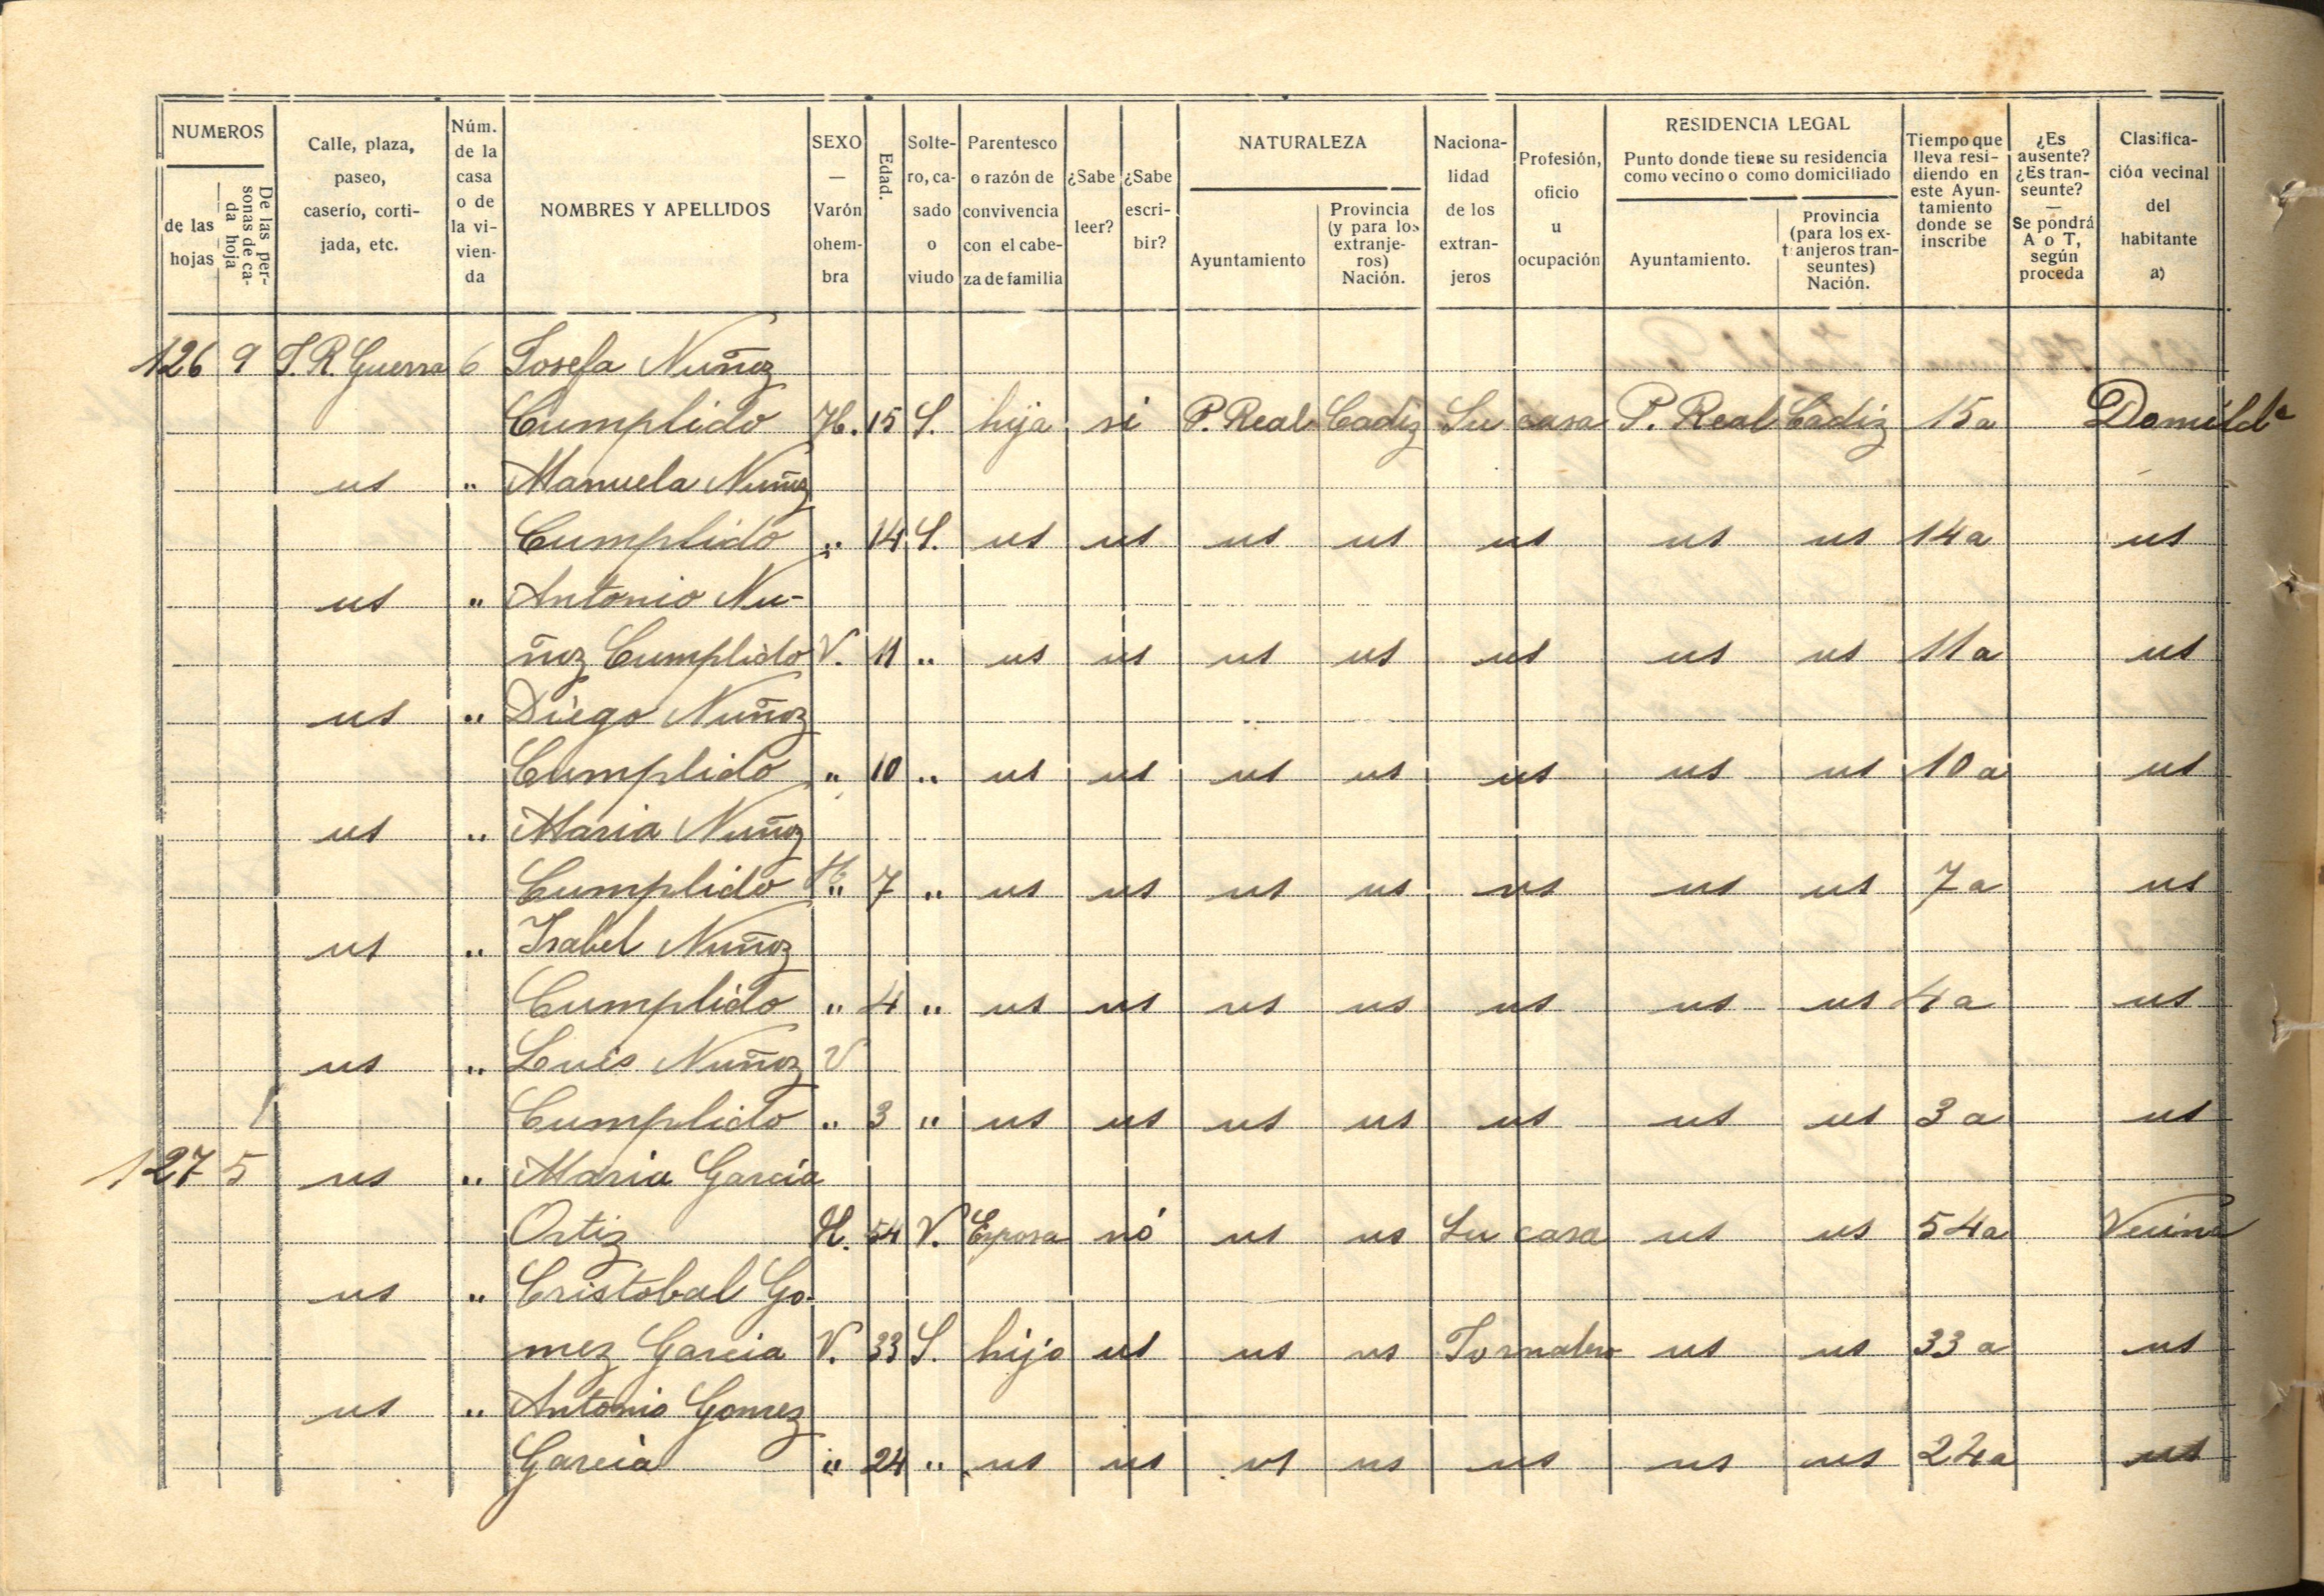 NUMEROS
de las hojas
De las personas de cada hoja
Calle, plaza, paseo, caserío, cortijada, etc.
Núm. de la casa o de la vivienda
NOMBRES Y APELLIDOS
SEXO — Varón ohembra
Edad.
Soltero, casado o viudo
Parentesco o razón de convivencia con el cabeza de familia
¿Sabe leer?
¿Sabe escribir?
NATURALEZA
Ayuntamiento
Provincia (y para los extranjeros) Nación.
Nacionalidad de los extranjeros
Profesión, oficio u ocupación
RESIDENCIA LEGAL
Punto donde tiene su residencia como vecino o como domiciliado
Ayuntamiento.
Provincia (para los extranjeros transeuntes) Nación.
Tiempo que lleva residiendo en este Ayuntamiento donde se inscribe
¿Es ausente? ¿Es transeunte? — Se pondrá A o T, según proceda
Clasificación vecinal del habitante a)
126 9 J. R. Guerra 6 Josefa Nuñez
Cumplido H. 15 S. hija si P. Real Cadiz Su casa P. Real Cadiz 15 a Domildª
us " Manuela Nuñez
Cumplido " 14 S. us us us us us us us 14 a us
us " Antonio Nu-
ñez Cumplido V. 11 " us us us us us us us 11 a us
us " Diego Nuñez
Cumplido " 10 " us us us us us us us 10 a us
us " Maria Nuñez
Cumplido H " 7 " us us us us us us us 7 a us
us " Isabel Nuñez
Cumplido " 4 " us us us us us us us 4 a us
us " Luis Nuñez V
Cumplido " 3 " us us us us us us us 3 a us
127 5 us " Maria Garcia
Ortiz H. 54 V. Esposa nó us us Su casa us us 54 a Vecina
us " Cristobal Go-
mez Garcia V. 33 S. hijo us us us Jornalero us us 33 a us
us " Antonio Gomez
Garcia " 24 " us us us us us us us 24 a us